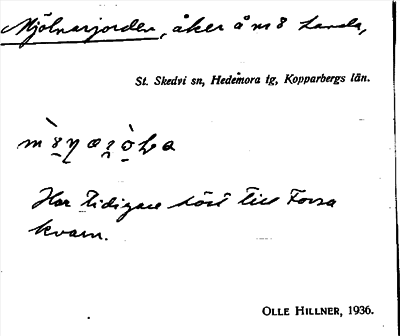 Mjölnarjorden, åker å n:o 8 Landa,
St. Skedvi sn, Hedemora tg, Kopparbergs län.
Har tidigare hört till Forsa
kvarn.
OLLE HILLNER, 1936.